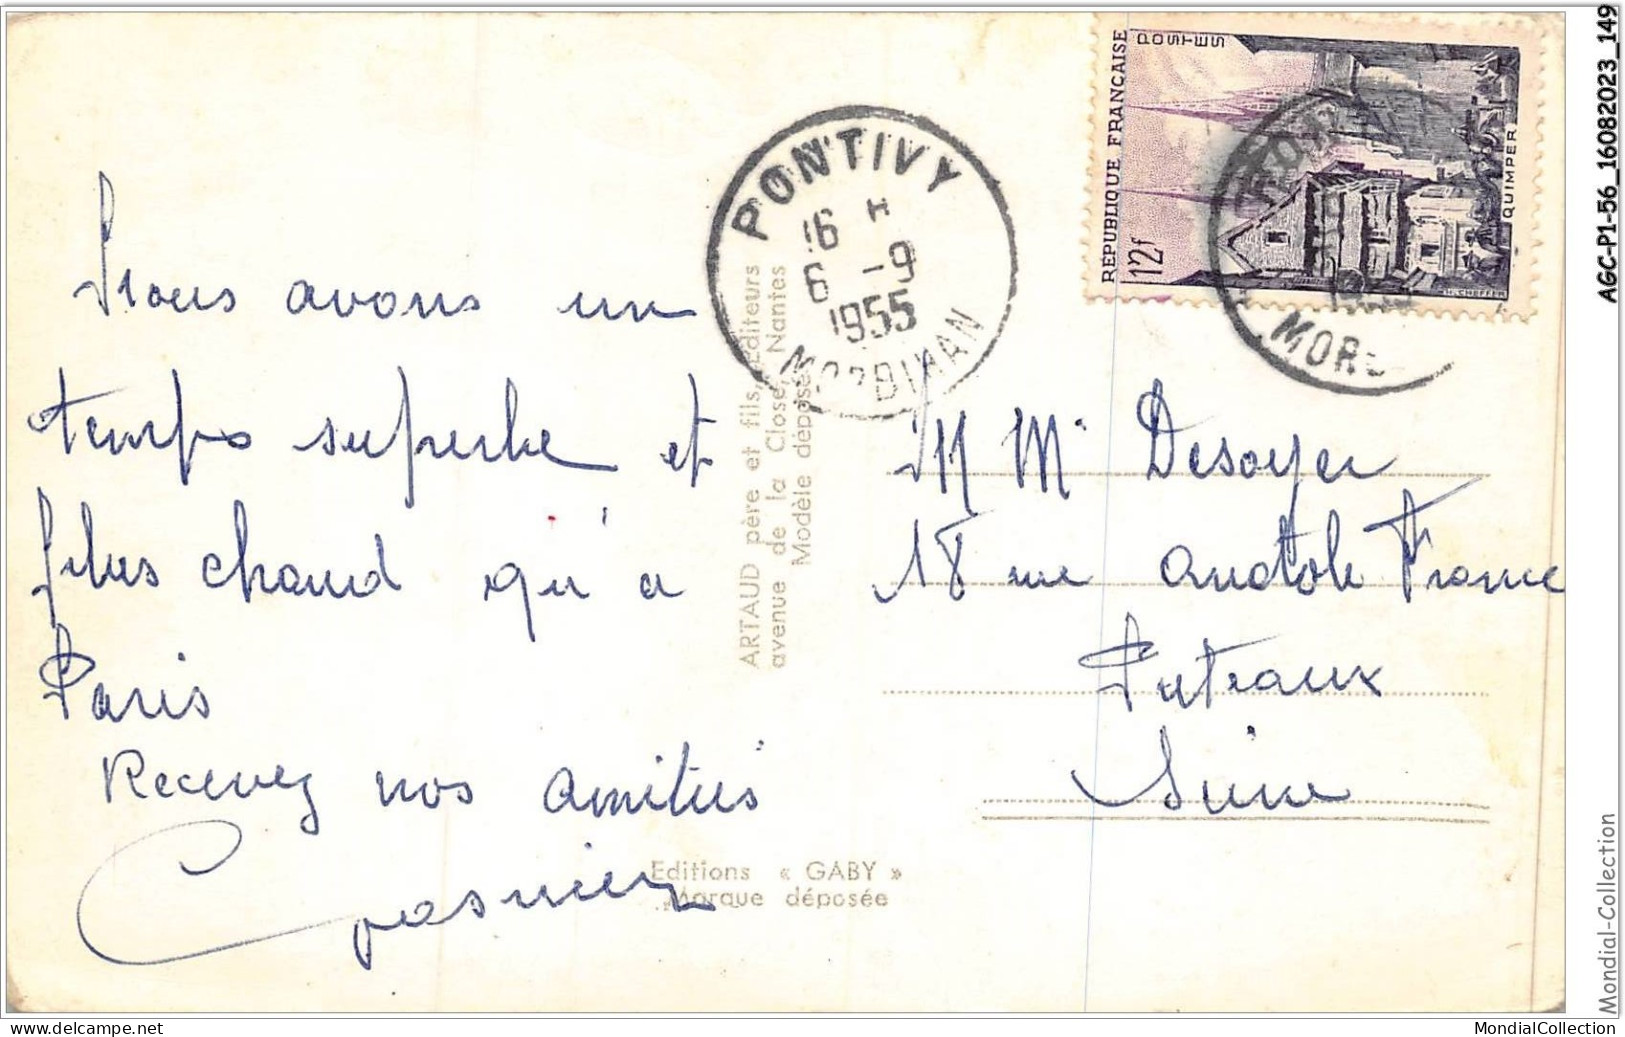 Nous avons un
temps superbe et
plus chaud qu'à
Paris
Recevez nos amitiés
PONTIVY
16 H
6 -9
1955
MORBIHAN
REPUBLIQUE FRANÇAISE
POSTES
12f
QUIMPER
H. CHEFFER
1955
MOR
ARTAUD père et fils, Editeurs
avenue de la Close, Nantes
Modèle déposé
M Mr Desoyer
18 rue Anatole France
Puteaux
Seine
Editions « GABY »
Marque déposée
AGC-P1-56_16082023_149
Mondial-Collection
www.delcampe.net
MondialCollection